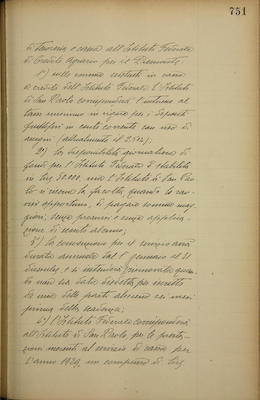 751
di Tesoreria e cassa all'Istituto Federale
di Credito Agrario per il Piemonte
1°) sulle somme esistenti in cassa
a credito dell'Istituto Federale l'Istituto
di San Paolo corrisponderà l'interesse al
tasso massimo in vigore per i depositi
fruttiferi in conto corrente con uso di
assegni (attualmente il 2.75%);
2°) la disponibilità giornaliera di
fondi per l'Istituto Federale è stabilita
in Lire 50.000, ma l'Istituto di San Pao-
lo si riserva la facoltà, quando lo rav-
visi opportuno, di pagare somme mag-
giori, senza preavviso e senza applica-
zione di sconto alcuno;
3°) la convenzione per il servizio avrà
durata annuale dal 1° gennaio al 31
dicembre, e si intenderà rinnovata qua-
lora non sia data disdetta per iscritto
da una delle parti almeno sei mesi
prima della scadenza;
4°) l'Istituto Federale corrisponderà
all'Istituto di San Paolo, per le presta-
zioni inerenti al servizio di cassa per
l'anno 1929, un compenso di Lire